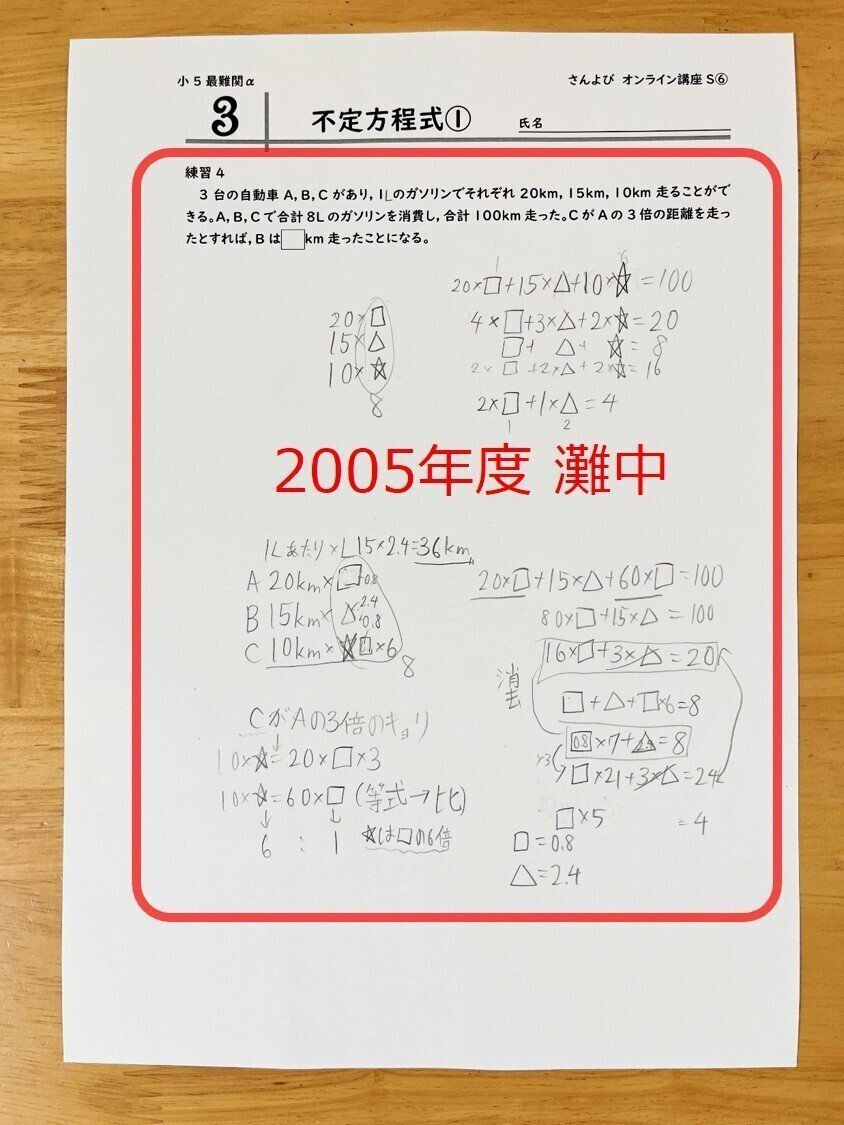 小5最難関α
さんよび オンライン講座 S⑥
3
不定方程式①
氏名
練習4
3台の自動車A,B,Cがあり,1Lのガソリンでそれぞれ20km,15km,10km走ることがで
きる。A,B,Cで合計8Lのガソリンを消費し,合計100km走った。CがAの3倍の距離を走っ
たとすれば,Bは□km走ったことになる。
20×□
15×△
10×☆
8
1
6
20×□+15×△+10×☆=100
4×□+3×△+2×☆=20
□+△+☆=8
2×□+2×△+2×☆=16
2×□+1×△=4
1
2
2005年度 灘中
1Lあたり×L 15×2.4=36km
A 20km×□ 0.8
B 15km×△ 2.4
C 10km×☆□×6
8
CがAの3倍のキョリ
10×☆=20×□×3
10×☆=60×□(等式→比)
6:1 ☆は□の6倍
20×□+15×△+60×□=100
80×□+15×△=100
16×□+3×△=20
消去
□+△+□×6=8
0.8×7+2.4=8
×3
□×21+3×△=24
□×5=4
□=0.8
△=2.4